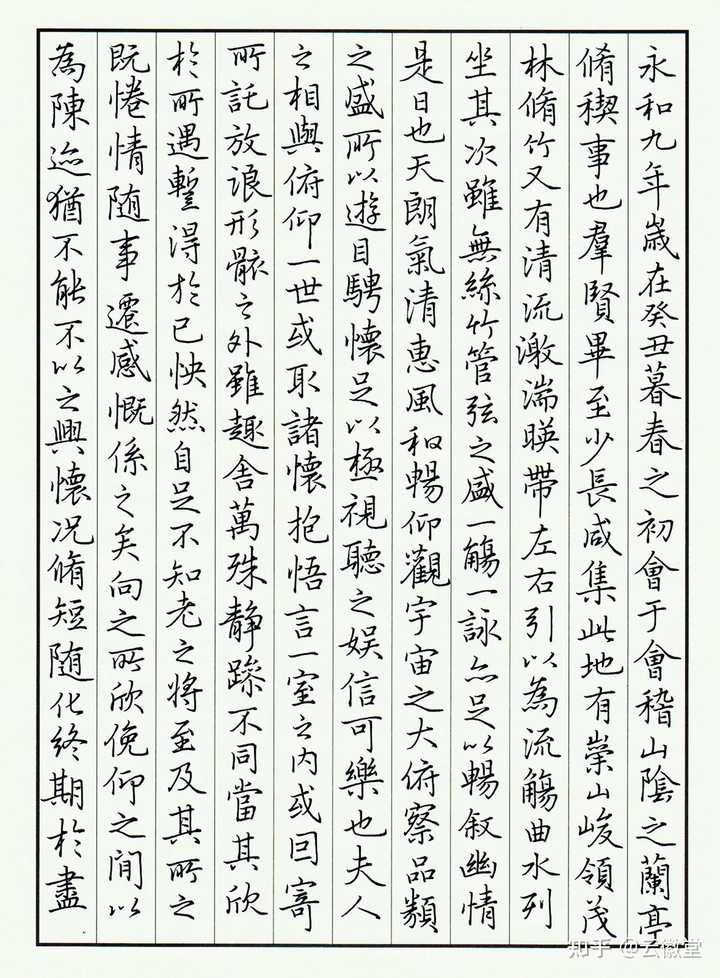 永和九年歲在癸丑暮春之初會于會稽山陰之蘭亭
脩稧事也羣賢畢至少長咸集此地有崇山峻領茂
林脩竹又有清流激湍暎帶左右引以為流觴曲水列
坐其次雖無絲竹管弦之盛一觴一詠亦足以暢叙幽情
是日也天朗氣清惠風和暢仰觀宇宙之大俯察品類
之盛所以遊目騁懷足以極視聽之娱信可樂也夫人
之相與俯仰一世或取諸懷抱悟言一室之内或因寄
所託放浪形骸之外雖趣舍萬殊静躁不同當其欣
於所遇蹔得於己怏然自足不知老之將至及其所之
既惓情随事遷感慨係之矣向之所欣俛仰之間以
為陳迹猶不能不以之興懷况脩短随化終期於盡
知乎 @云徽堂